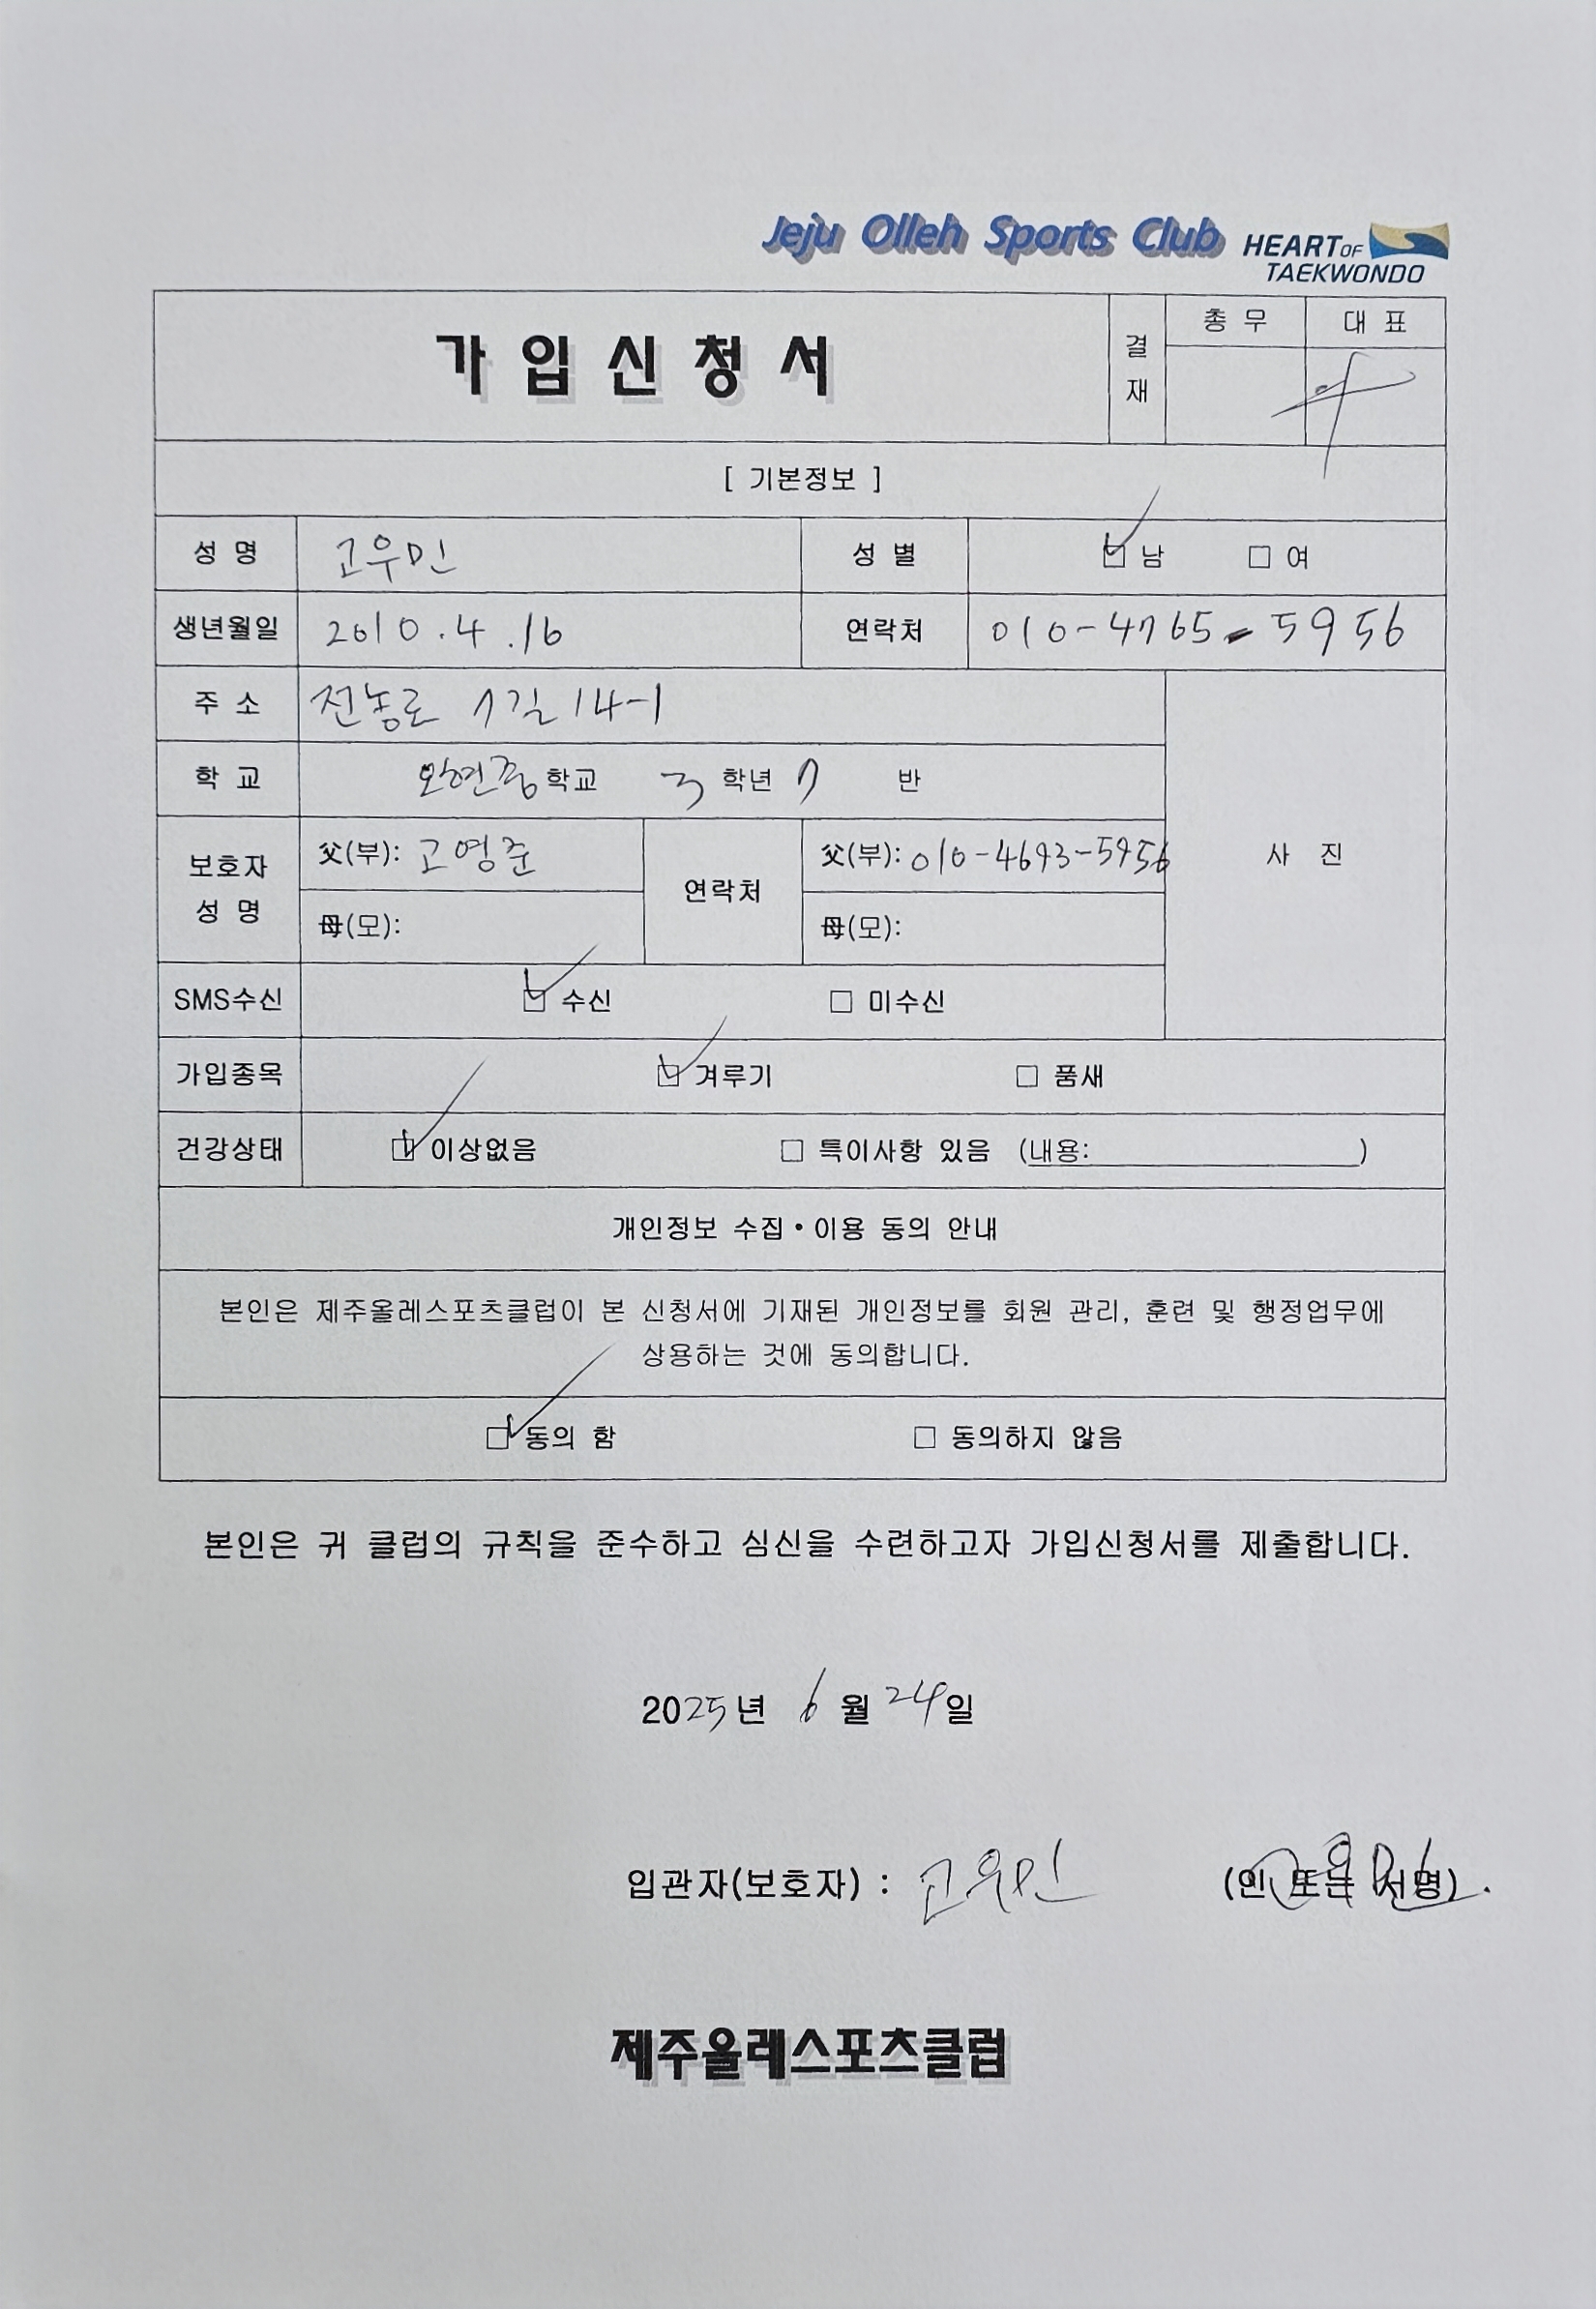 Jeju Olleh Sports Club HEART OF TAEKWONDO
가입신청서
결재 총 무 대 표
[ 기본정보 ]
성 명 고우민 성 별 남 □ 여
생년월일 2010.4.16 연락처 010-4765-5956
주 소 전농로 7길 14-1
학 교 오현중학교 3 학년 7 반
사 진
보호자 성 명 父(부): 고영준 연락처 父(부): 010-4693-5956
母(모): 母(모):
SMS수신 ☑ 수신 □ 미수신
가입종목 ☑ 겨루기 □ 품새
건강상태 ☑ 이상없음 □ 특이사항 있음 (내용: )
개인정보 수집・이용 동의 안내
본인은 제주올레스포츠클럽이 본 신청서에 기재된 개인정보를 회원 관리, 훈련 및 행정업무에
상용하는 것에 동의합니다.
☑ 동의 함 □ 동의하지 않음
본인은 귀 클럽의 규칙을 준수하고 심신을 수련하고자 가입신청서를 제출합니다.
2025년 6월 24일
입관자(보호자) : 고우민 (인 또는 서명).
제주올레스포츠클럽